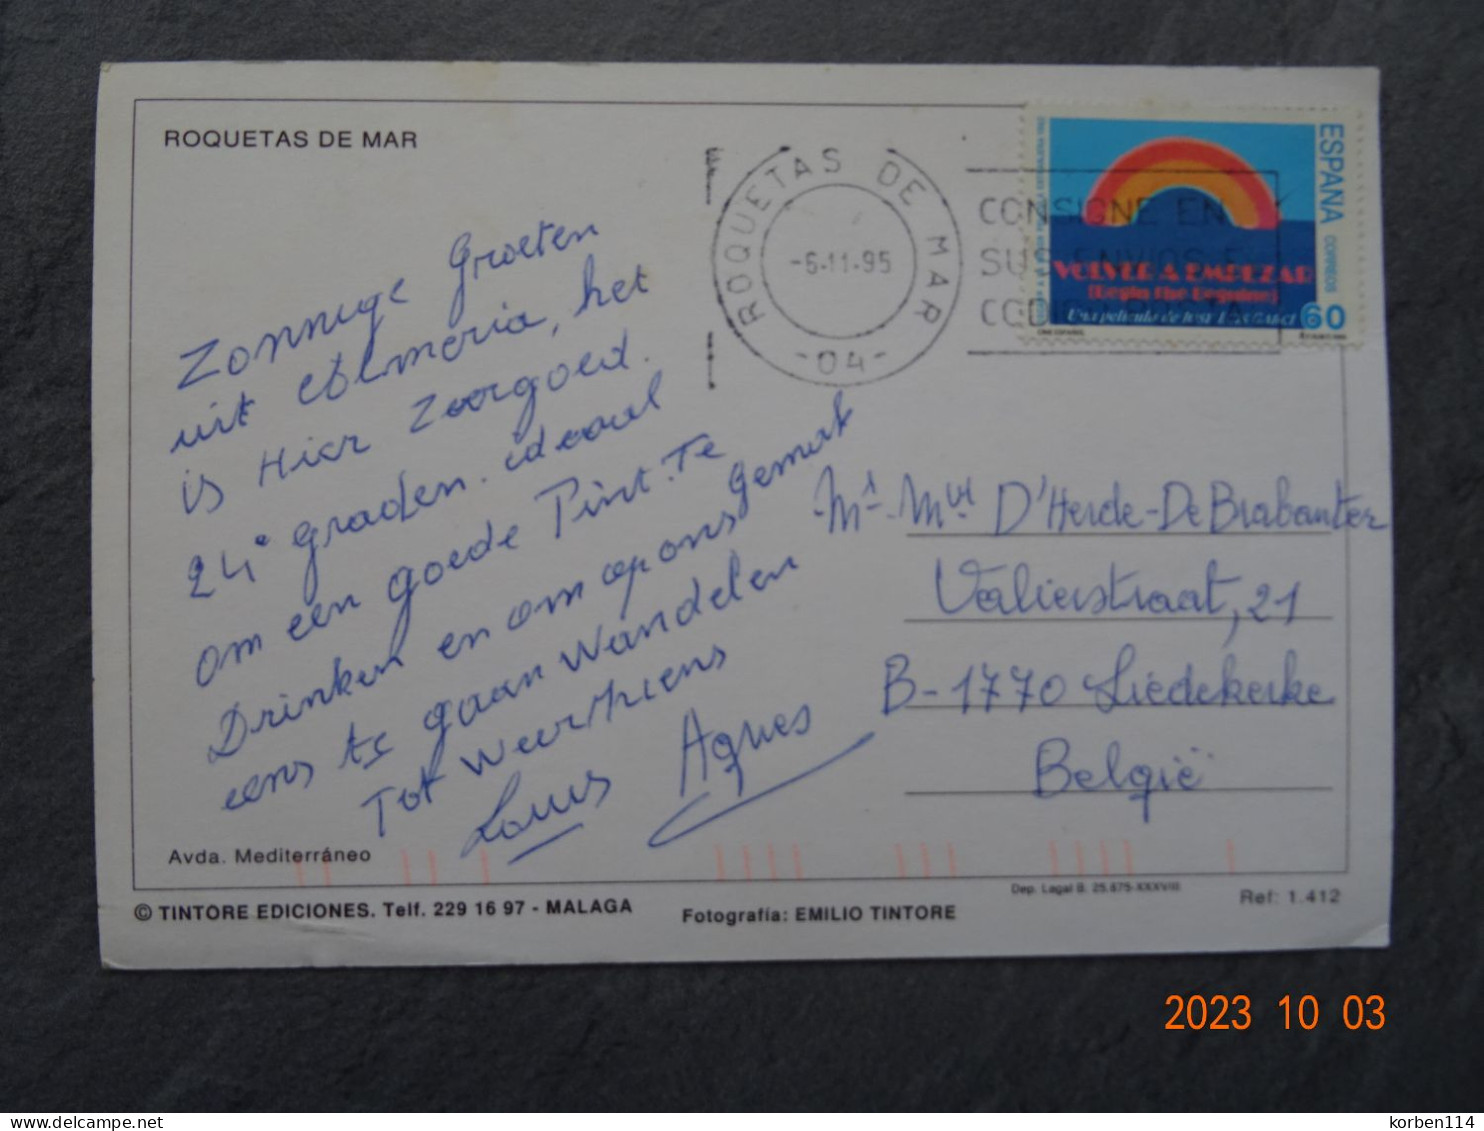 ROQUETAS DE MAR
Zonnige Groeten
uit Almeria, het
is Hier Zeergoed.
24° graden. ideaal
om een goede Pint. Te
Drinken en om op ons gemak
eens te gaan Wandelen
Tot weerziens
Louis Agnes
Avda. Mediterráneo
© TINTORE EDICIONES. Telf. 229 16 97 - MALAGA
Fotografía: EMILIO TINTORE
Dep. Legal B. 25.875-XXXVIII
Ref: 1.412
ROQUETAS DE MAR
-6-11-95
-04-
CONSIGNE EN
SUS ENVIOS E
ESPAÑA CORREOS
VOLVER A EMPEZAR
(Begin the Beguine)
Una película de JOSE LUIS GARCI
CINE ESPAÑOL
60
Mr. Mvr D'Herde-De Brabanter
Valierstraat, 21
B-1770 Liedekerke
België
2023 10 03
korben114